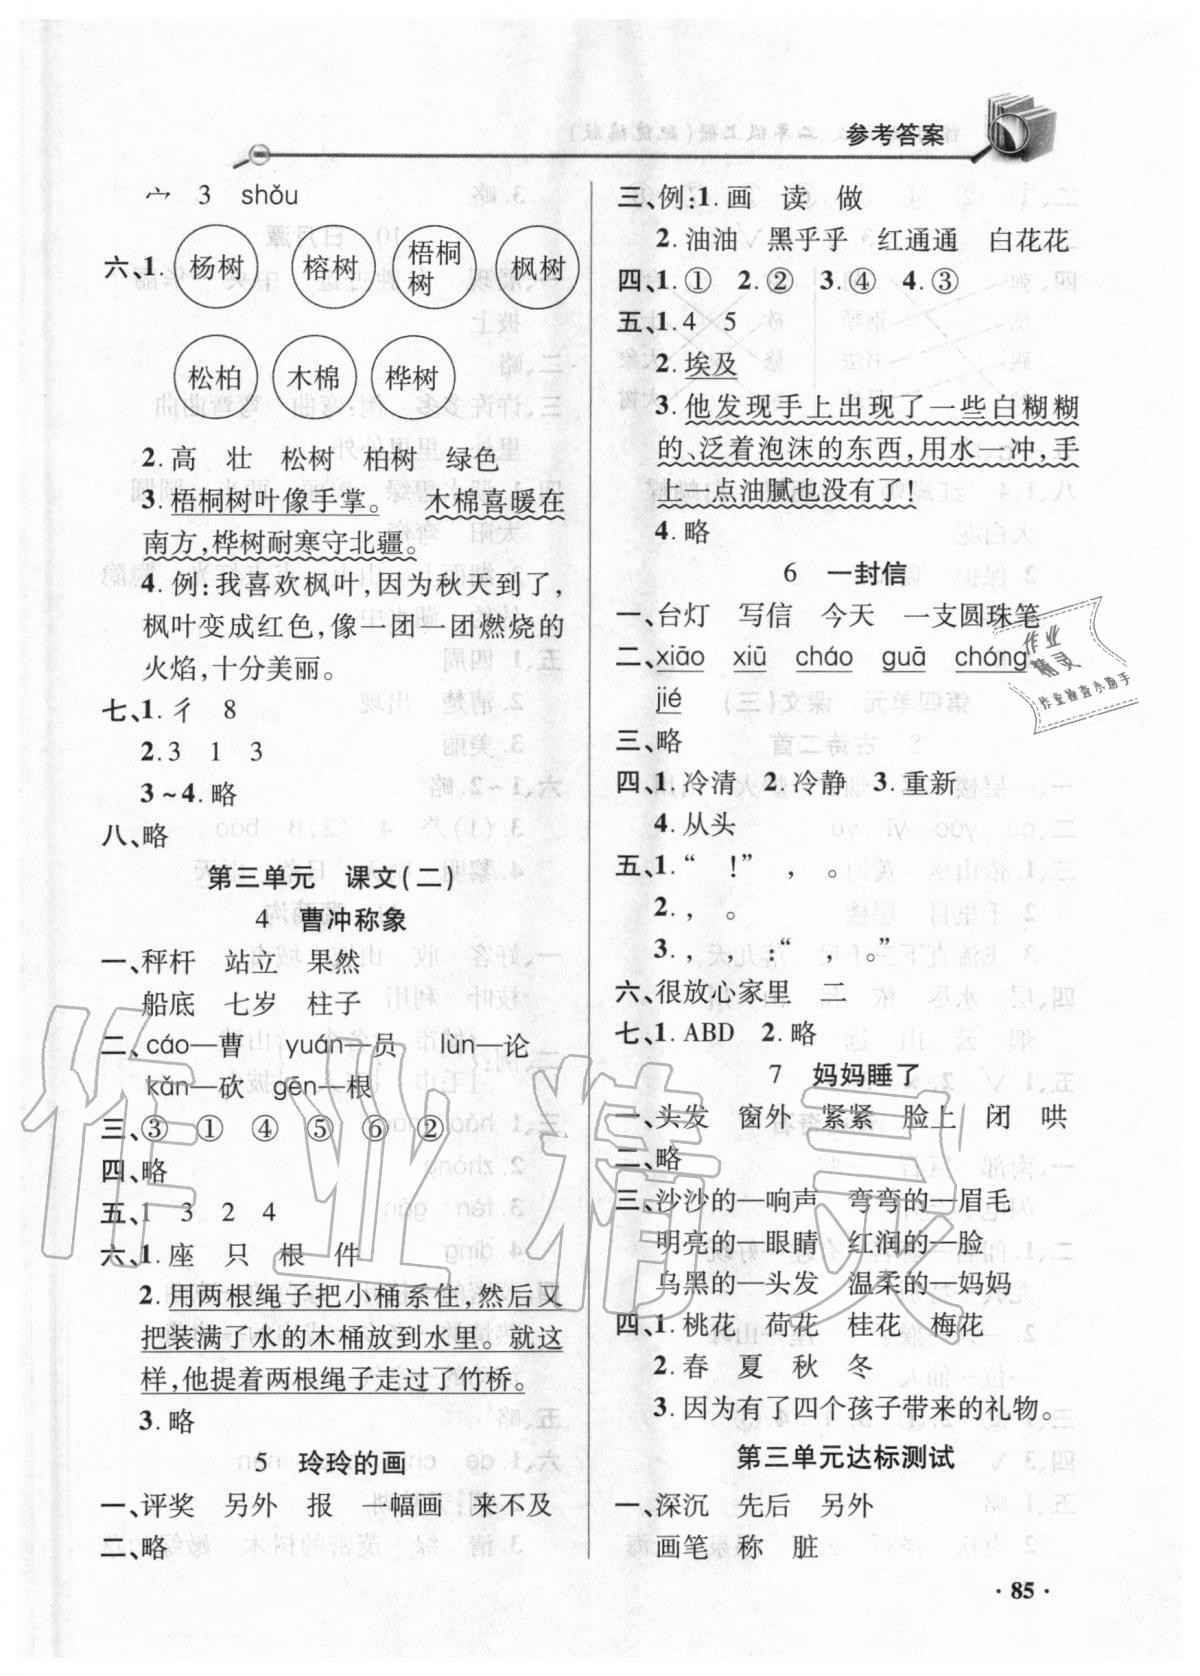 参考答案
宀 3 shǒu
六、1. 杨树 榕树 梧桐树 枫树
松柏 木棉 桦树
2. 高 壮 松树 柏树 绿色
3. 梧桐树叶像手掌。 木棉喜暖在
南方,桦树耐寒守北疆。
4. 例:我喜欢枫叶,因为秋天到了,
枫叶变成红色,像一团一团燃烧的
火焰,十分美丽。
七、1. 彳 8
2. 3 1 3
3~4. 略
八、略
第三单元 课文(二)
4 曹冲称象
一、秤杆 站立 果然
船底 七岁 柱子
二、cáo—曹 yuán—员 lùn—论
kǎn—砍 gēn—根
三、③ ① ④ ⑤ ⑥ ②
四、略
五、1 3 2 4
六、1. 座 只 根 件
2. 用两根绳子把小桶系住,然后又
把装满了水的木桶放到水里。就这
样,他提着两根绳子走过了竹桥。
3. 略
5 玲玲的画
一、评奖 另外 报 一幅画 来不及
二、略
三、例:1. 画 读 做
2. 油油 黑乎乎 红通通 白花花
四、1. ① 2. ② 3. ④ 4. ③
五、1. 4 5
2. 埃及
3. 他发现手上出现了一些白糊糊
的、泛着泡沫的东西,用水一冲,手
上一点油腻也没有了!
4. 略
6 一封信
一、台灯 写信 今天 一支圆珠笔
二、xiāo xiū cháo guā chóng
jié
三、略
四、1. 冷清 2. 冷静 3. 重新
4. 从头
五、1. “ !” , 。
2. , 。
3. , , :“ , 。”
六、很放心家里 二
七、1. ABD 2. 略
7 妈妈睡了
一、头发 窗外 紧紧 脸上 闭 哄
二、略
三、沙沙的—响声 弯弯的—眉毛
明亮的—眼睛 红润的—脸
乌黑的—头发 温柔的—妈妈
四、1. 桃花 荷花 桂花 梅花
2. 春 夏 秋 冬
3. 因为有了四个孩子带来的礼物。
第三单元达标测试
一、深沉 先后 另外
画笔 称 脏
· 85 ·
作业精灵
作业
精灵
作业检查小助手